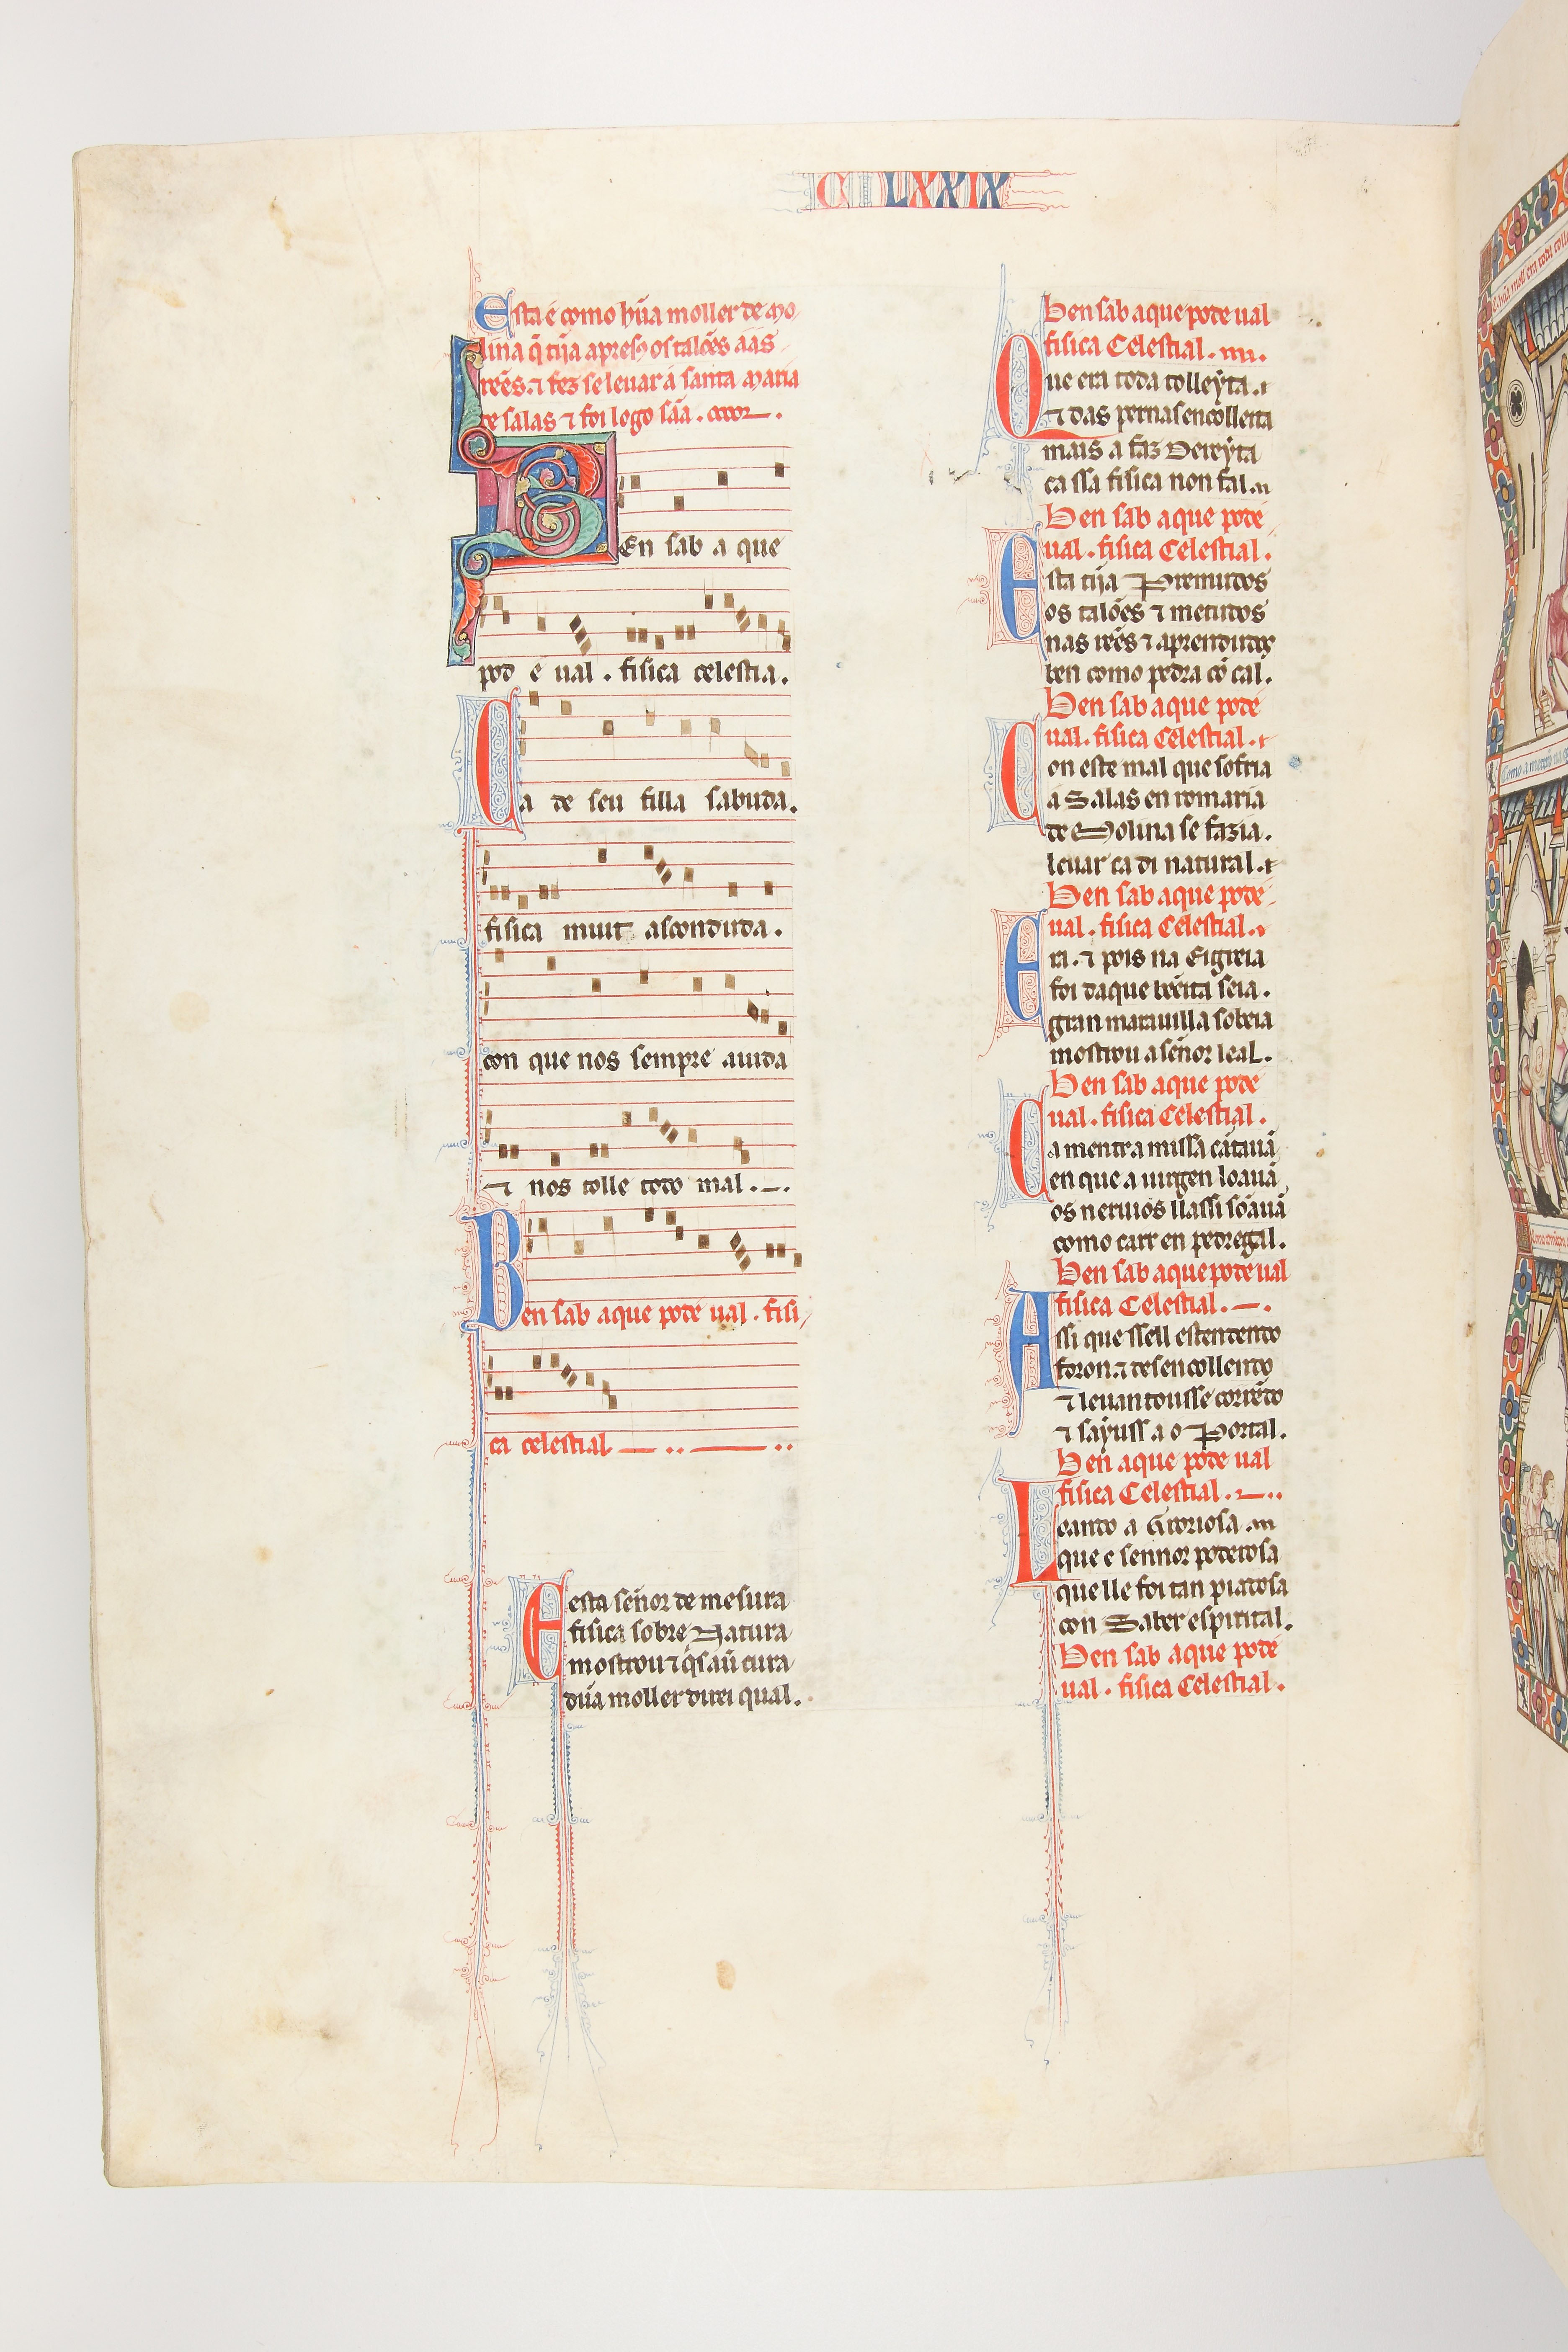 C LXXIX
Esta é como hũa moller de Mo
lina q̃ tijña apresos os talões aas
rẽes. ⁊ fez se leuar á santa Maria
de salas ⁊ foi logo sãa.
BEn sab a que
pod e ual. fisica celestia.
Ca de seu filla sabuda.
fisica muit ascondida.
con que nos sempre auida
⁊ nos tolle todo mal.
Ben sab aque pode ual. fisi
ca celestial
E esta señor de mesura
fisica sobre Natura
mostrou ⁊ q̃ s aũ cura
dũa moller direi qual.
Ben sab aque pode ual
fisica Celestial.
Que era toda tolleỹta.
⁊ das pernas encolleita
mais a faz Dereỹta
ca ssa fisica non fal.
Ben sab aque pode
ual. fisica Celestial.
Esta tija Premudos
os talões ⁊ metudos
nas rẽes ⁊ aprendudos
ben como pedra cõ cal.
Ben sab aque pode
ual. fisica Celestial.
Con este mal que sofria
a Salas en romaria
de Molina se fazia.
leuar ca di natural.
Ben sab aque pode
ual. fisica Celestial.
Era. ⁊ pois na Eigreia
foi daque bẽeita seia.
gran marauilla sobeia
mostrou a señor leal.
Ben sab aque pode
ual. fisica Celestial.
Ca mentra missa cãtauã
en que a uirgen loauã
os neruios llassi sõauã
como carr en pedregal.
Ben sab aque pode ual
fisica Celestial.
Assi que ssell estendendo
foron. ⁊ desencollendo
⁊ leuantousse corrẽdo
⁊ saỹuss a o Portal.
Ben aque pode ual
fisica Celestial.
Loando a Groriosa
que e sennor poderosa
que lle foi tan piadosa
con Saber espirital.
Ben sab aque pode
ual. fisica Celestial.